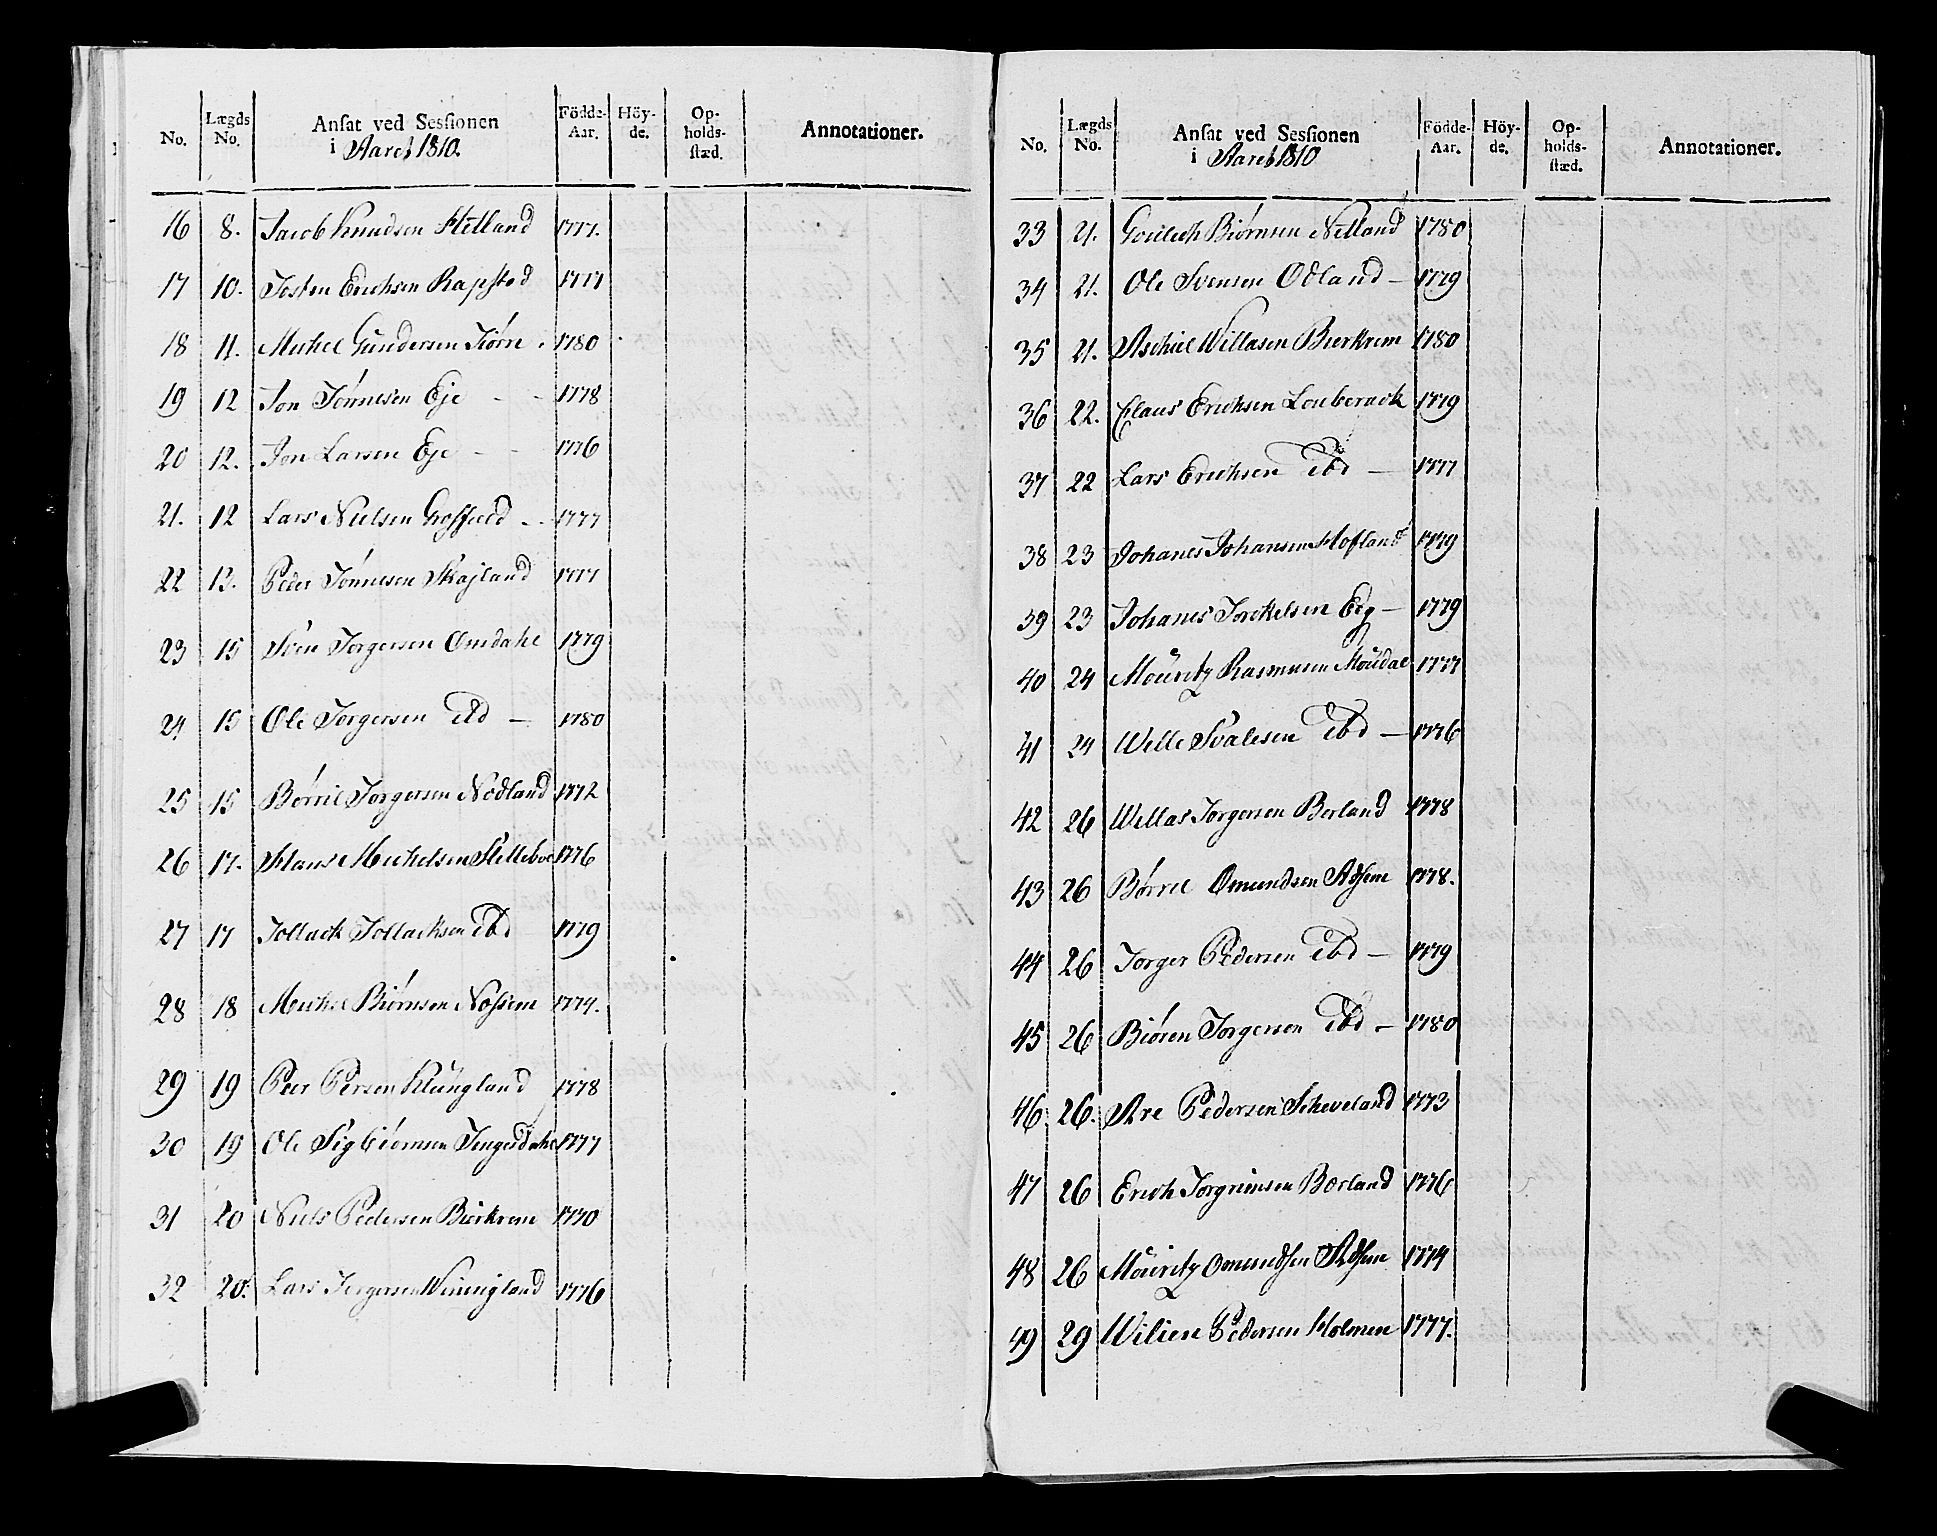 No. Lægds No. Ansat ved Sessionen i Aaret 1810. Födde-Aar. Höy-de. Op-holds-stæd. Annotationer.
16 8. Jacob Knudsen Hetland 1777.
17 10. Josten Erichsen Rapstad 1777
18 11. Michel Gundersen Tiørn 1780
19 12 Jon Tønnesen Eje - - 1778
20 12. Jon Larsen Eje - - 1776
21. 12 Lars Nielsen - - 1777
22 13. Peder Tønnesen Skajland 1777
23 15 Sven Torgersen Omdahl 1779
24 15 Ole Torgersen ibd — 1780
25 15 Børril Torgersen Nodland 1772
26 17. Hans Michelsen Stelleboe 1776
27 17 Tollack Tollacksen ibd 1779
28 18 Michel Biørnsen 1774.
29 19 Peer Persen Klungland 1778
30 19 Ole Sigbiørnsen 1777
31 20 Niels Pedersen Bierkrem 1770
32 20. Lars Torgersen 1776
No. Lægds No. Ansat ved Sessionen i Aaret 1810 Födde-Aar. Höy-de. Op-holds-stæd. Annotationer.
33 21. Biørnsen Netland 1780
34 21. Ole Svensen Odland — 1779
35 21. Aschiel Willasen Bierkrem 1780
36 22. Claus Erichsen 1779
37 22 Lars Erichsen ibd — 1777
38 23 Johanes Johansen Hofland 1779
39 23 Johanes Torckelsen Eeg — 1779
40 24 Mouritz Rasmusen Moudal 1777
41 24 Welle Svalesen ibd — 1776
42 26 Wellas Torgersen Berland 1778
43 26 Børril Omundsen 1778.
44 26 Torger Pedersen ibd — 1779
45 26 Biøren Torgersen ibd — 1780
46 26. Are Pedersen Scheveland 1773
47 26 Erich Torgrimsen Berland 1776
48 26 Mouritz Omundsen 1774
49 29 Pedersen Holmen 1777.